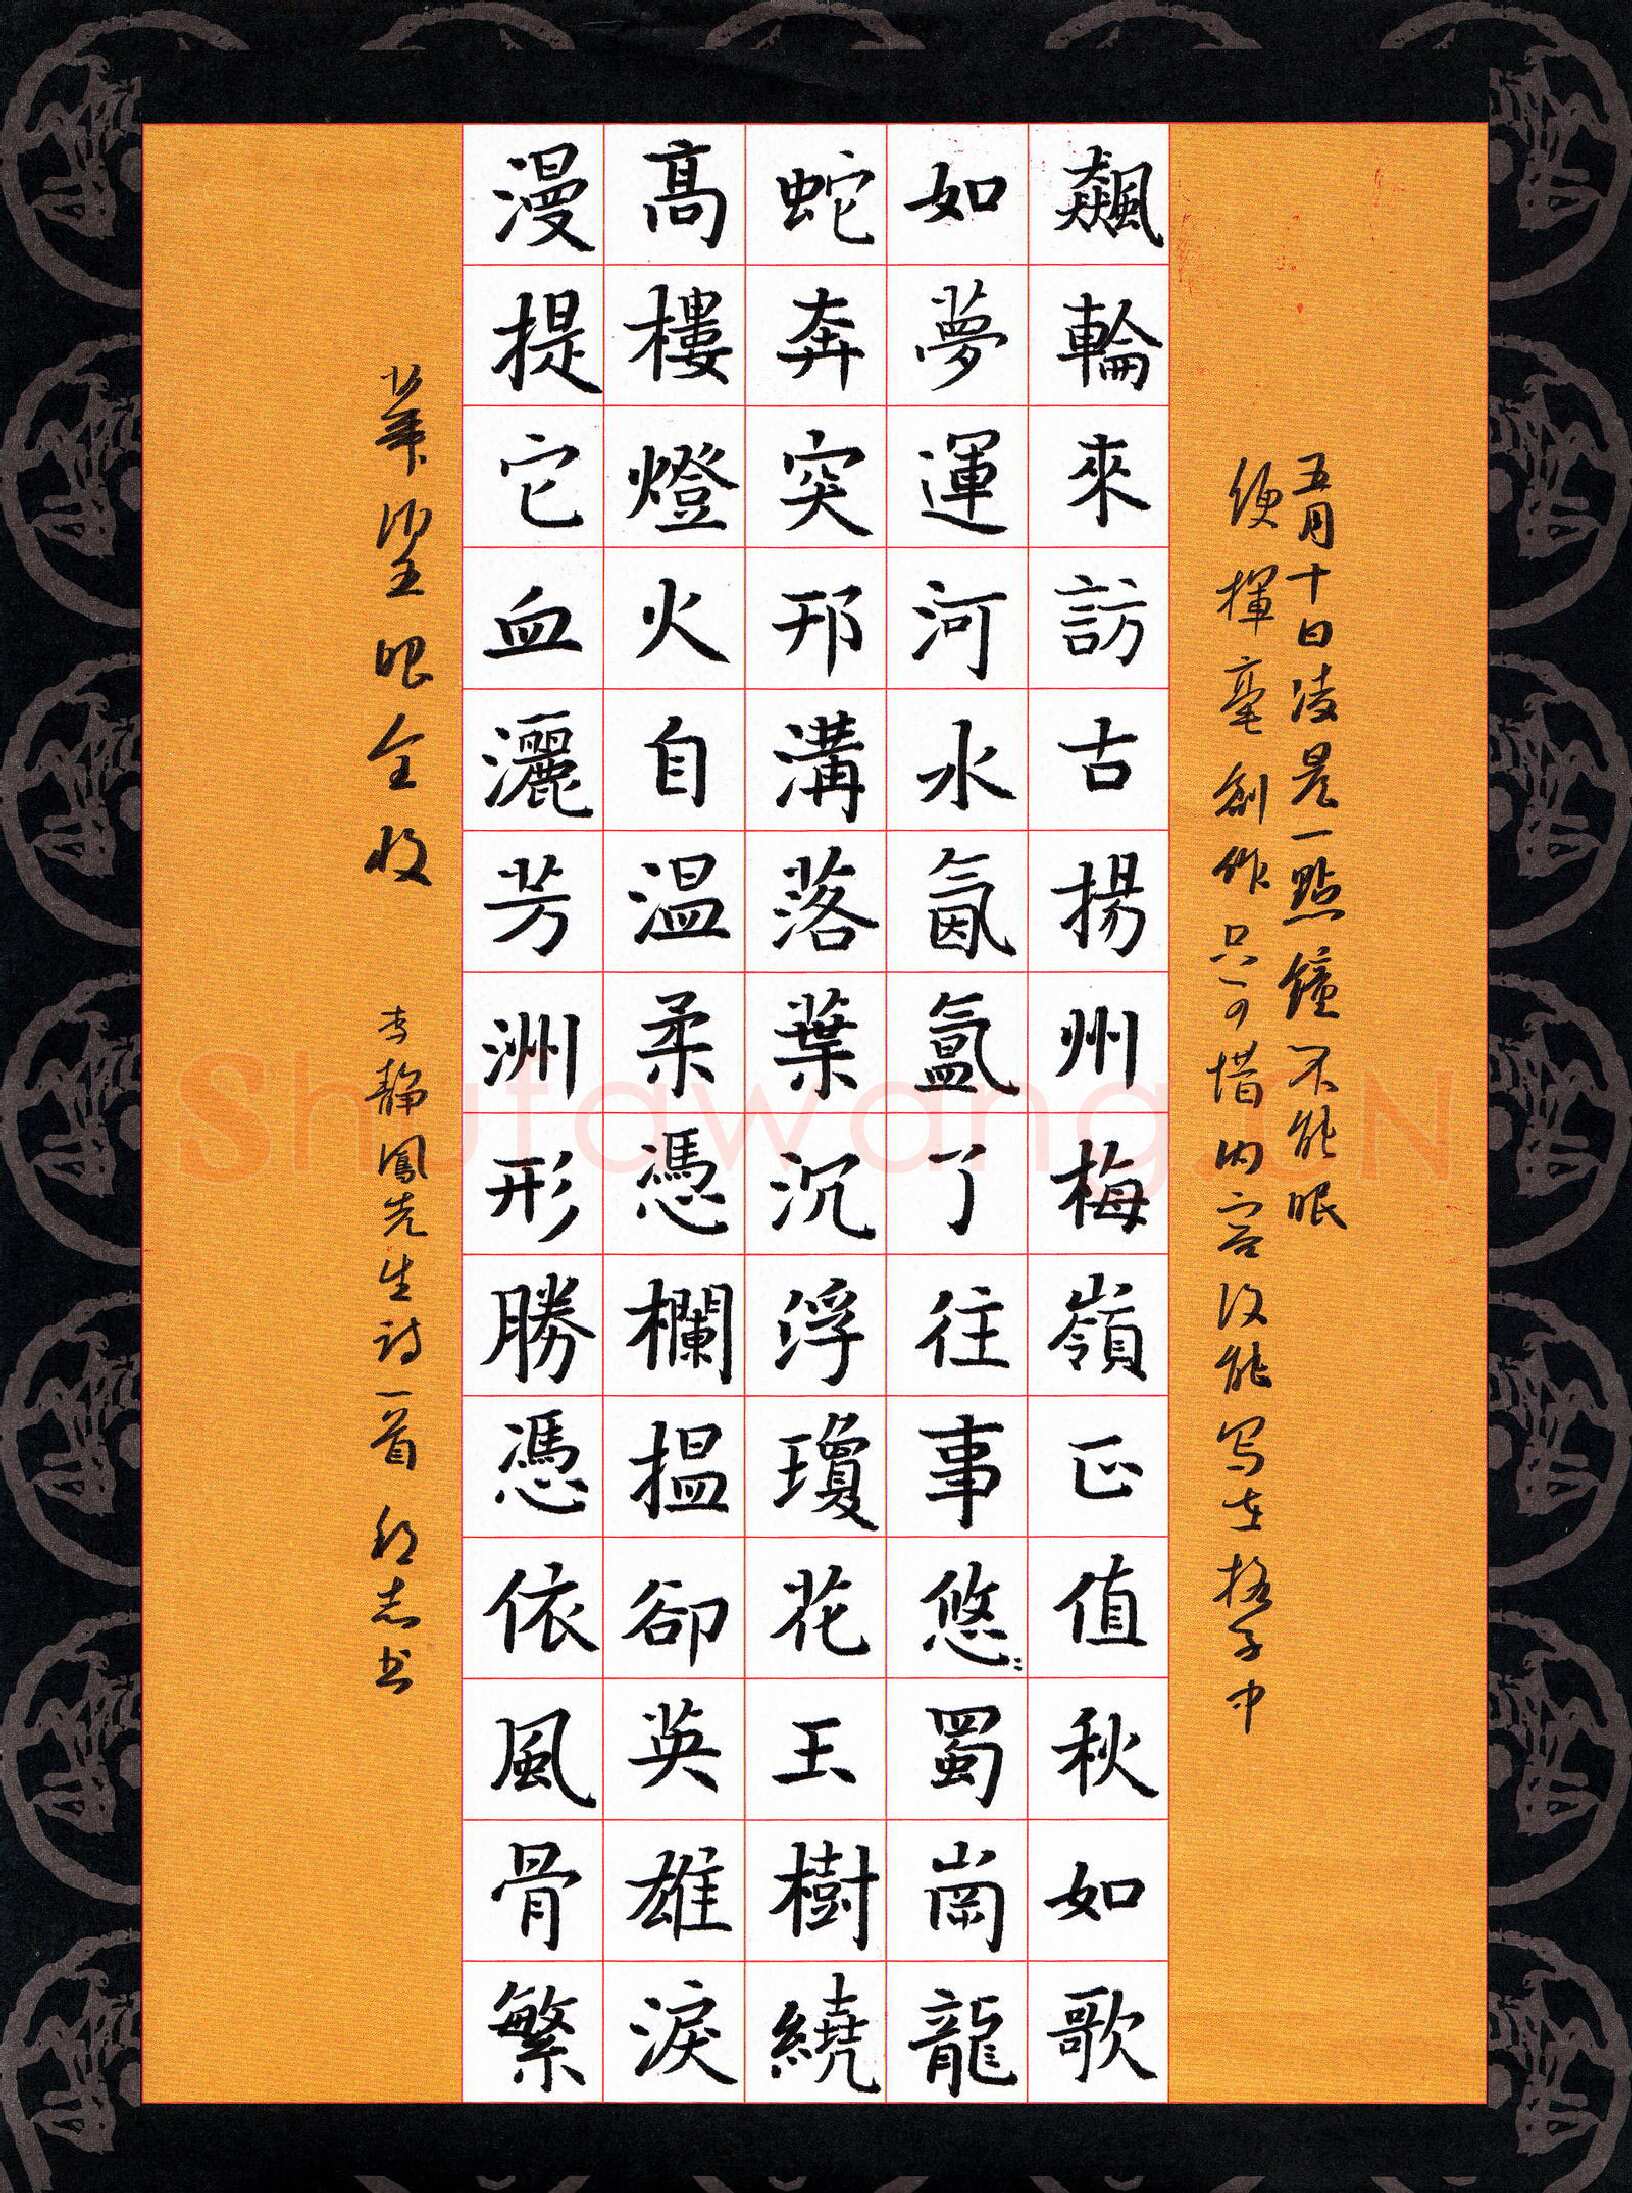 五月十日凌晨一點鐘不能眠
便揮毫創作只可惜内容没能写在格子中
飆輪來訪古揚州梅嶺正值秋如歌
如夢運河水氤氳了往事悠:蜀崗龍
蛇奔突邗溝落葉沉浮瓊花玉樹繞
高樓燈火自温柔憑欄搵卻英雄淚
漫提它血灑芳洲形勝憑依風骨繁
華望眼全收
李靜鳳先生詩一首 志书
ShufawangCN